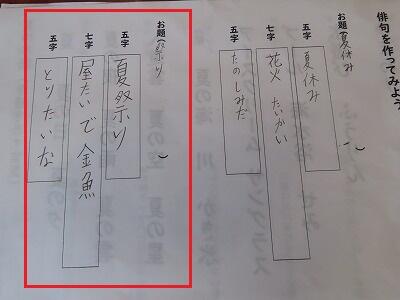 俳句を作ってみよう
お題(夏休み)
五字
夏休み
七字
花火 たいかい
五字
たのしみだ
お題(祭り)
五字
夏祭り
七字
屋たいで金魚
五字
とりたいな